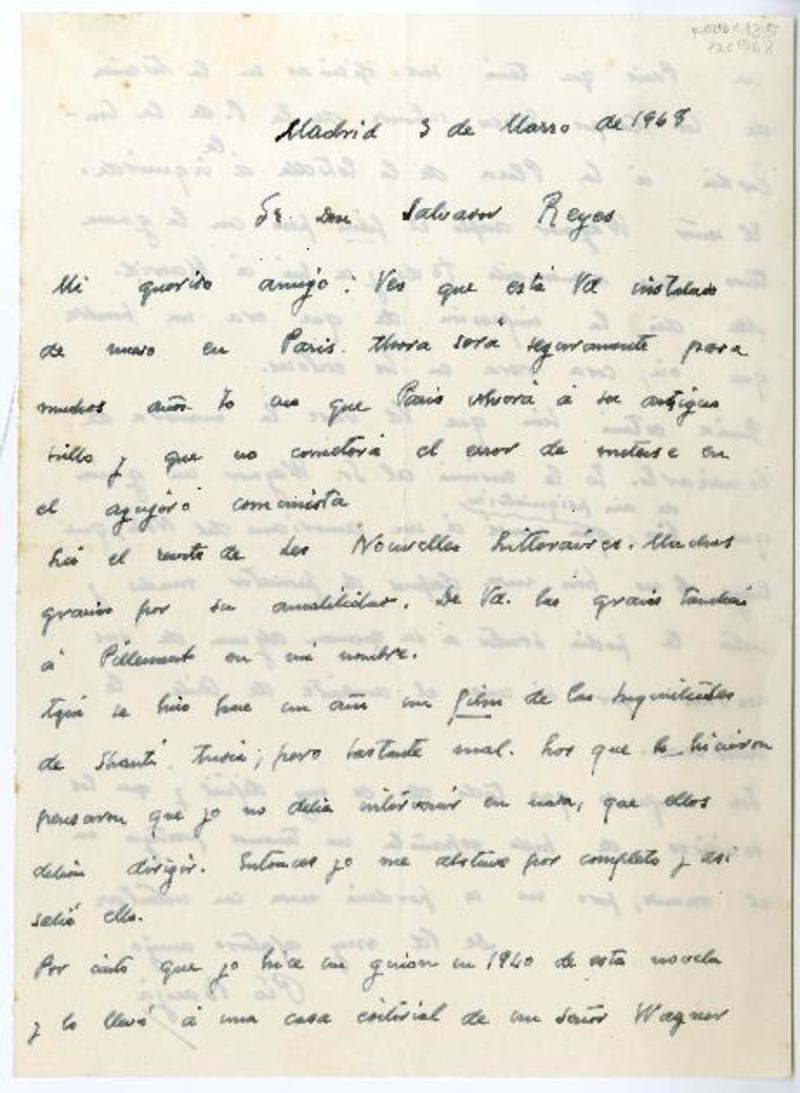 Madrid 3 de Marzo de 1948
Sr. Don Salvador Reyes
Mi querido amigo: Veo que está Vd instalado
de nuevo en Paris. Ahora será seguramente para
muchos años. Yo creo que Paris volverá á su antiguo
brillo y que no cometerá el error de meterse en
el agujero comunista
Leí el recorte de Les Nouvelles Litteraires. Muchas
gracias por su amabilidad. De Vd. las gracias también
á Pillement en mi nombre.
Aquí se hizo hace un año un film de las Inquietudes
de Shanti Andia; pero bastante mal. Los que lo hicieron
pensaron que yo no debia intervenir en nada, que ellos
debian dirigir. Entonces yo me abstuve por completo y asi
salió ello.
Por cierto que yo hice un guion en 1940 de esta novela
y lo llevé á una casa editorial de un señor Wagner